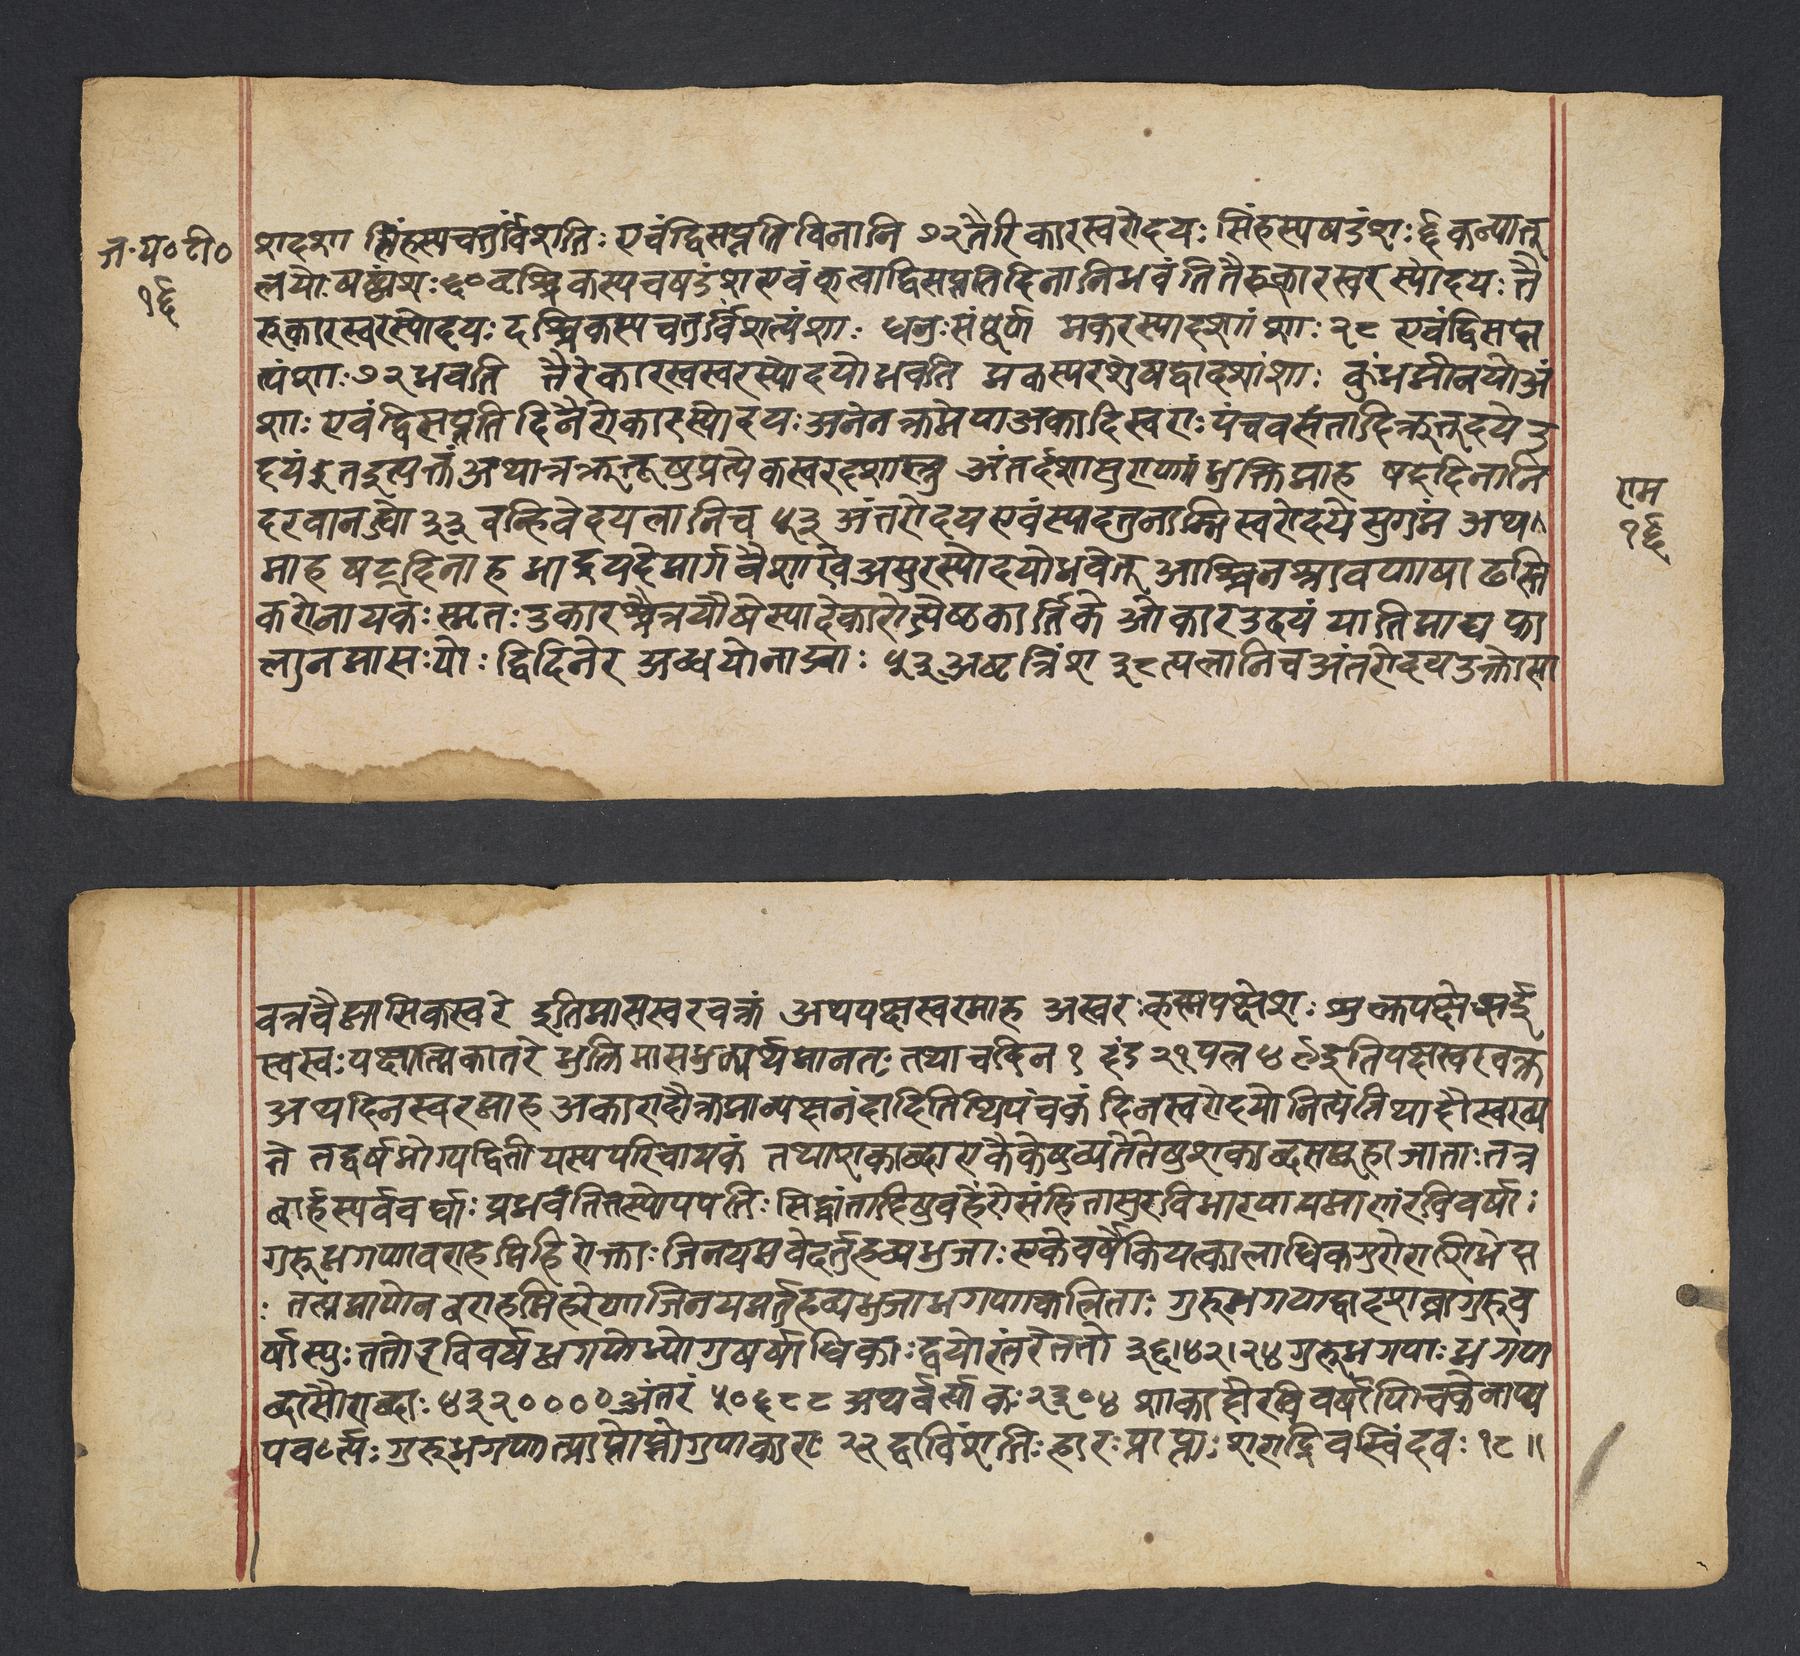 ज॰य॰टी॰
१६
शदशा सिंहस्यचतुर्विंशति: एवंद्विसप्तति विनानि ७२ तैरिकारस्वरोदय: सिंहस्यषडंश: ६ कन्यातु
लयो: षष्ट्यंश: ६० वृश्चिकस्यचषडंश एवं कृत्वाद्विसप्ततिदिनानिभवंति तैरुकारस्वरस्योदय: तै
रुकारस्वरस्योदय: वृश्चिकस्यचतुर्विंशत्यंशा: धनु:संपूर्ण मकरस्यादशांशा: २८ एवंद्विसप्त
त्यंशा: ७२ भवति तैरेकारस्वस्वरस्योदयोभवति मकस्यरशेषद्वादशांशा: कुंभमीनयोअं
शा: एवंद्विसप्तति दिनैरोकारस्योदय: अनेनक्रमेणाअकादिस्वरा: पंचवसंतादिऋतुदये उ
दयं इतइत्युक्तं अथान्नऋतूषुप्रत्येकस्वरदशास्त्र अंतर्दशासुराणां भुक्तिमाह षट्दिनानि
दरवानख्यो ३३ वन्हिवेदयलानिच ५३ अंतरोदय एवंस्यादतुनाम्निस्वरोदये सुगमं अथ
माह षट्दिनाह भाद्रयदेमार्गवैशाखेअसुरस्योदयोभवेत् आश्विनश्रावणाषाढस्ति
करोनायकं: स्मृत: उकारश्चैत्रयौषेस्यादेकारोज्येष्ठकार्तिके ओकारउदयं यातिमाघफा
ल्गुनमास:यो: द्विदिनेर अब्धयोनाड्या: ५३ अष्टत्रिंश ३८ त्पलानिचअंतरोदयउक्तोसा
राम
१६
वत्रवैमासिकस्वरे इतिमासस्वरचक्रं अथपक्षस्वरमाह अस्वर:कृस्नपक्षेश: शुक्लपक्षे
स्वस्व:पक्षात्मिकातरे भुक्तिमासभुक्त्यर्धमानत: तथाचदिन १ दंड २१ पल ४९ इतिपक्षस्वरचक्र
अथदिनस्वरमाह अकारादौक्रमान्यक्षनंदादितिथिपंचकं दिनस्वरोदयोनित्यंतिथादौस्वरव्य
ते तद्वर्षभोग्यद्वितीयस्यपरिचायकं तथाशकाब्दाएकैकेषुव्यतेतेषुशकाब्दसमूहाजाता:तत्र
बार्हस्पर्ववर्षा: प्रभवंतितस्योपपत्ति: सिद्धांतादिषुवहेरोसंहितासुरविभारपायमारांरविवर्षा:
गुरुभगणावराहमिहिरोक्ता: जिनयमवेदर्तुहव्यभुजा: एकेवर्षेकियत्कालाधिकगुरोराशिभेस
: तत्प्रमाणेनवराहमिहरेणाजिनयमर्तुहव्यभुजाभगणाकलिता: गुरुभगणाद्वादशघ्नागुरुव
र्षास्यु: ततोरविवर्षभगणेभ्योगुषर्षाधिका: द्वयोरंतरेततो ३६४२२४ गुरुभगणा: भगणा
ब्दासौराब्दा: ४३२०००० अंतरं ५०६८८ अथर्वर्स्या क: २३०४ शाकाद्दौरविवर्षाणिचक्रेनाप्य
पवर्त्स्य: गुरुभगणात्प्राप्तोप्तोगुणाकारा: २२ द्वाविंशति: हार: प्राप्ता: शराद्रिवस्विंदव: १८॥